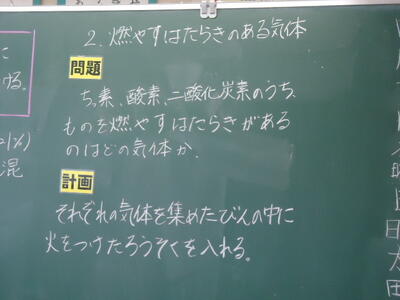 2. 燃やすはたらきのある気体
問題
ちっ素、酸素、二酸化炭素のうち、
ものを燃やすはたらきがある
のはどの気体か.
計画
それぞれの気体を集めたびんの中に
火をつけたろうそくを入れる。
に
ける。
21%)
混